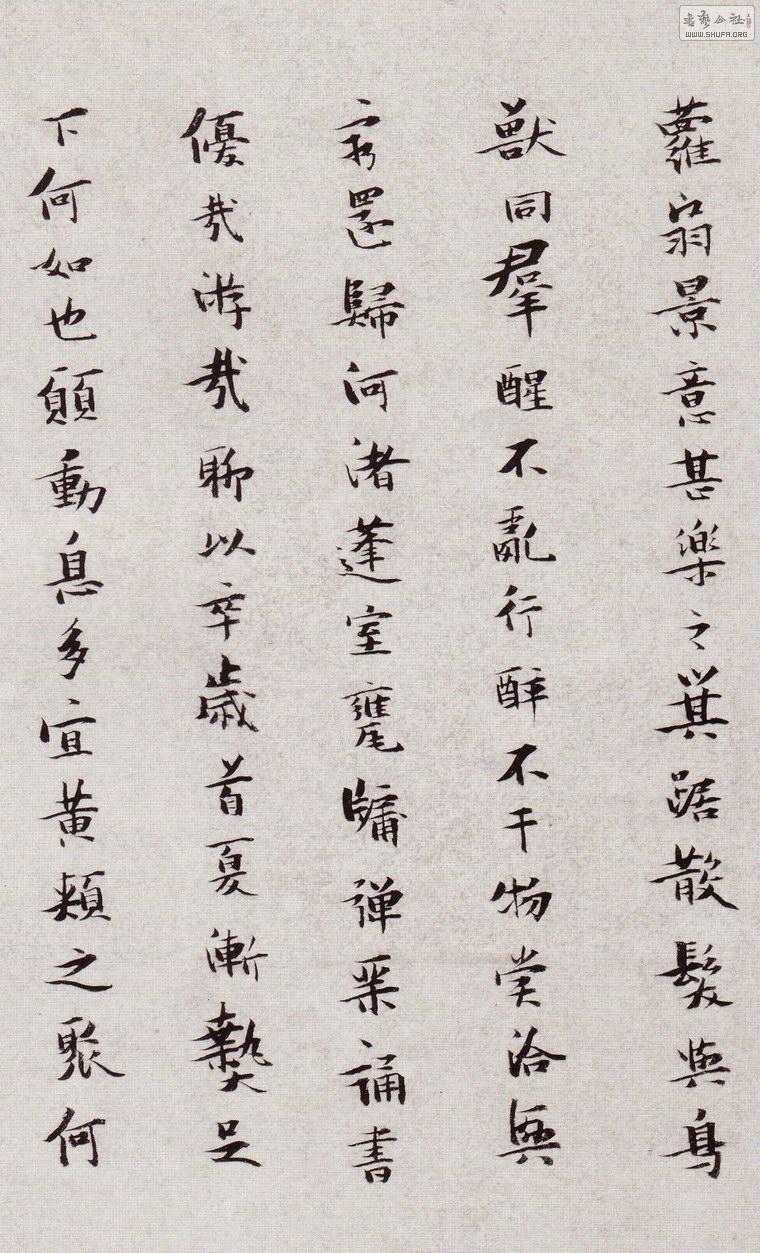 蘿扇景意甚樂之箕踞散髮與鳥
獸同羣醒不亂行醉不干物賞洽興
窮還歸河渚蓬室甕牖彈琴誦書
優哉游哉聊以卒歲首夏漸熱足
下何如也願動息多宜黃頰之聚何
書藝公社
WWW.SHUFA.ORG